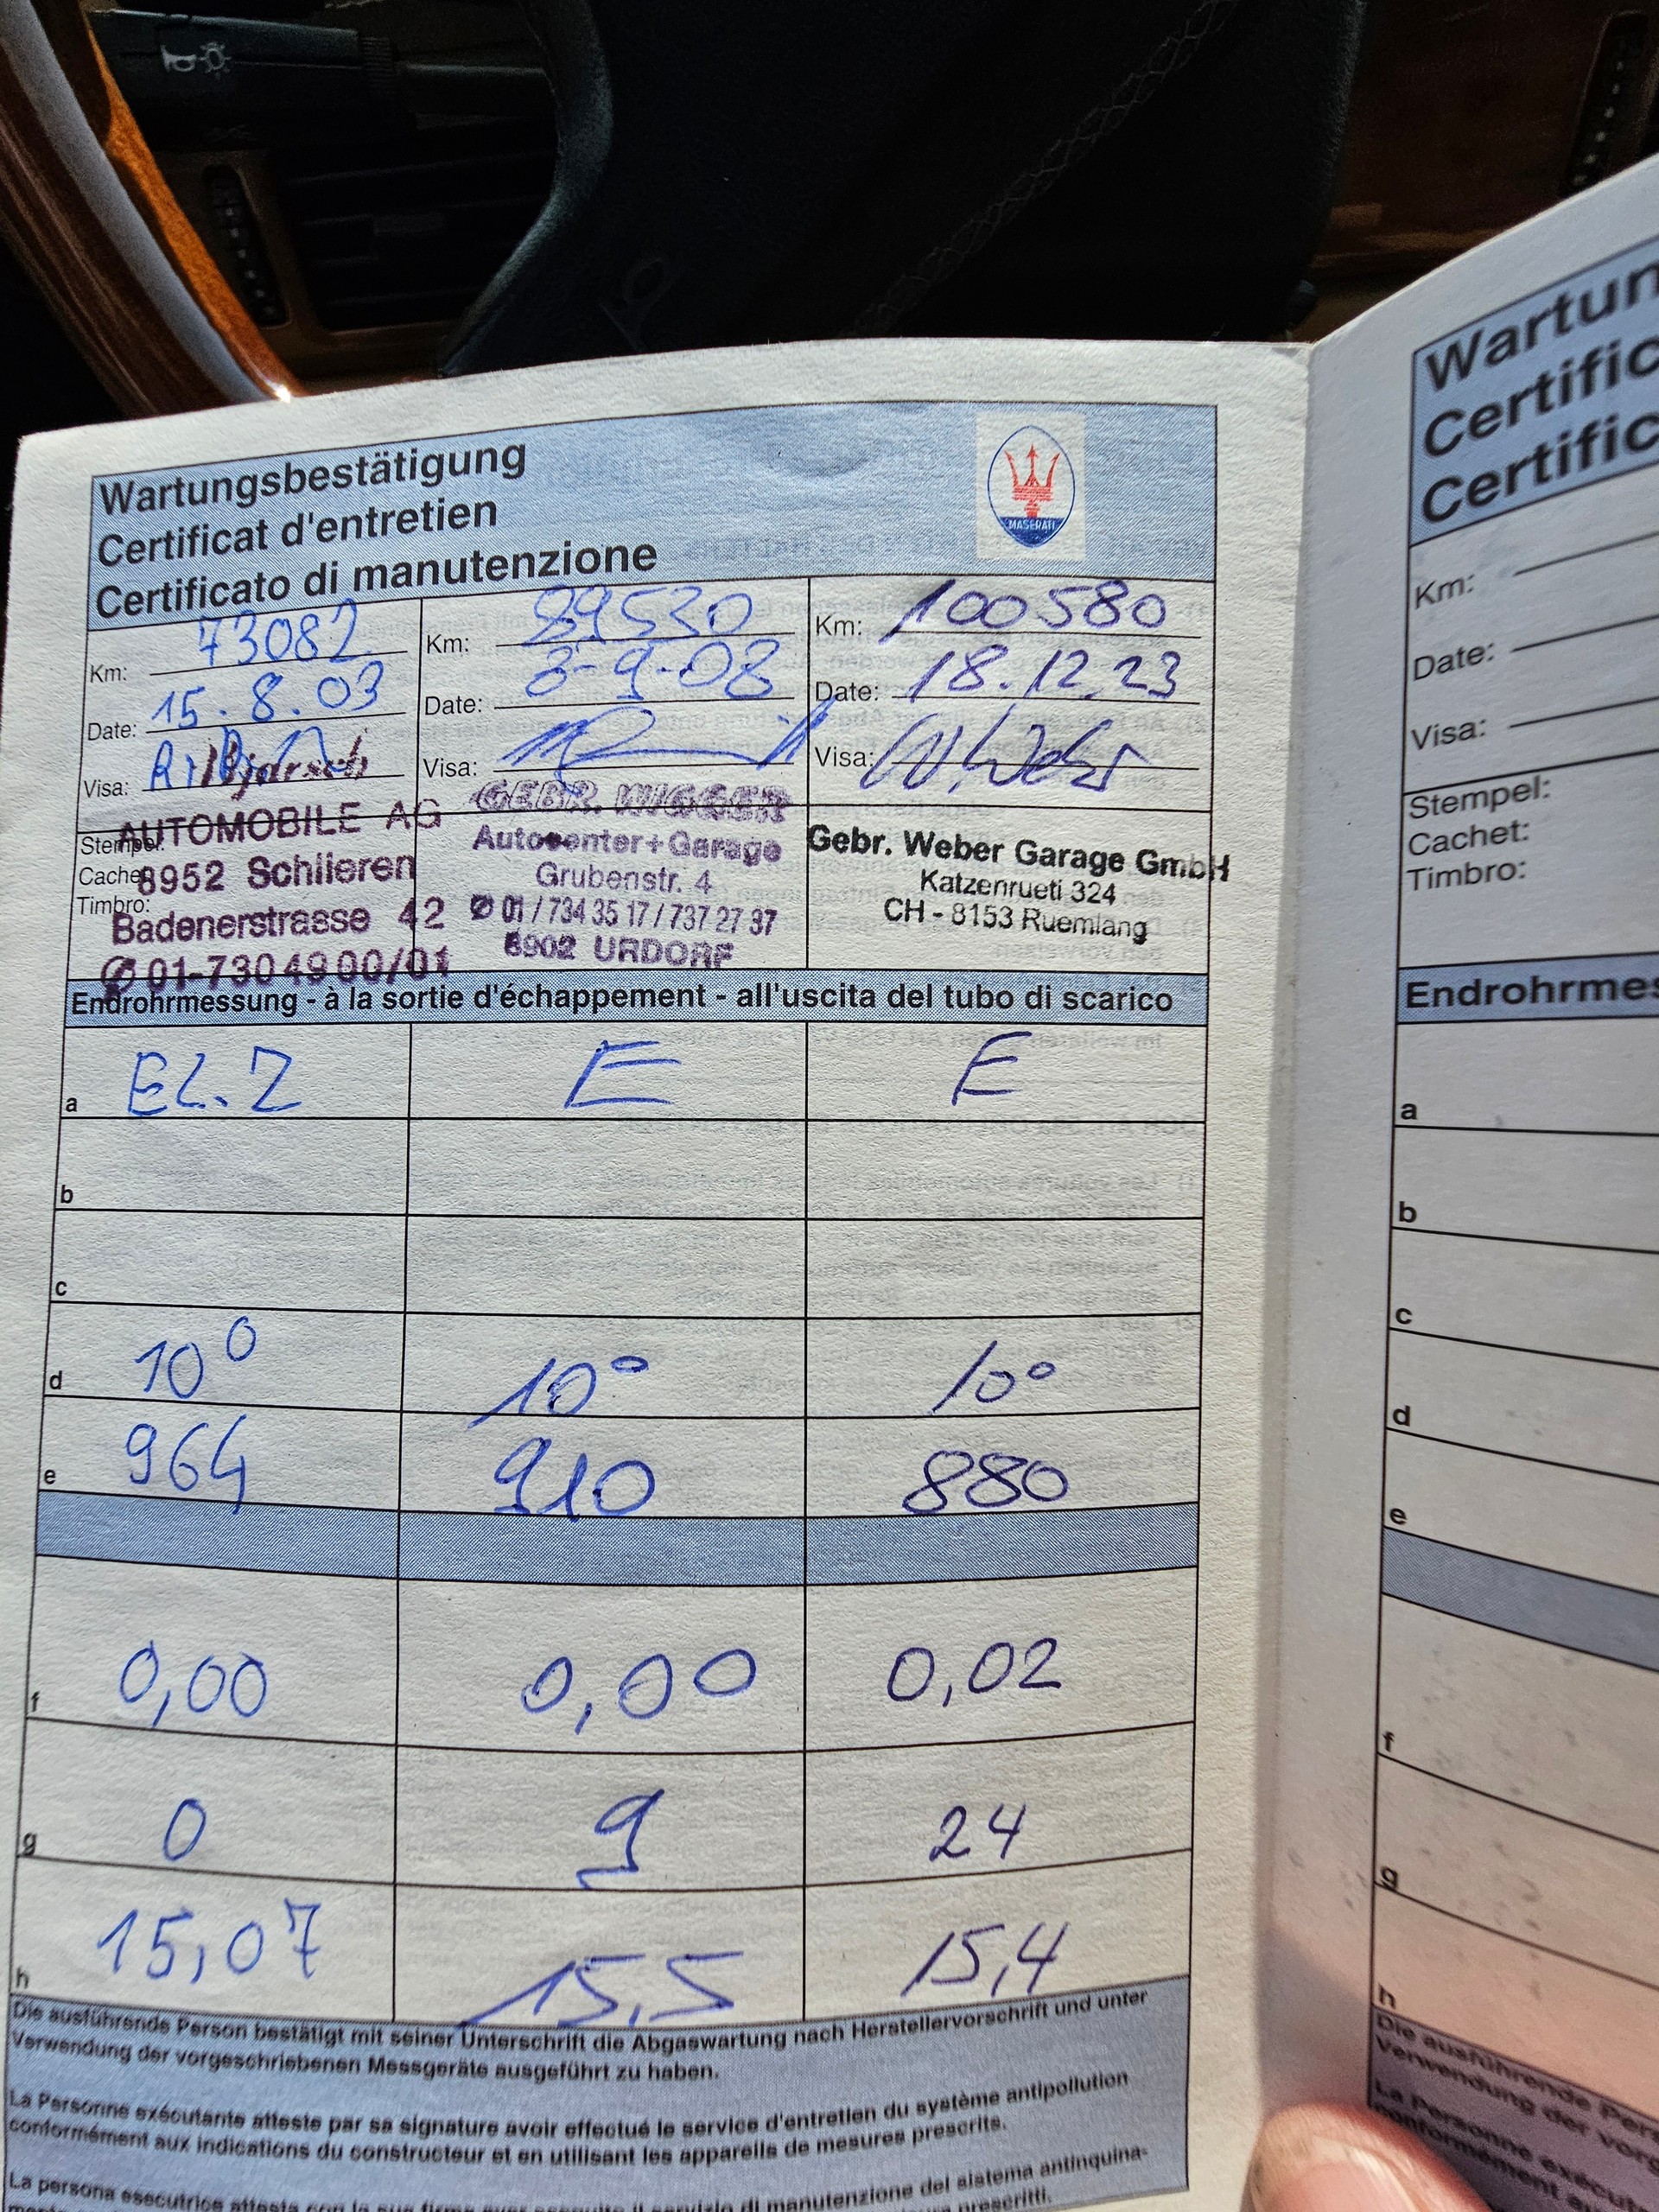 Wartungsbestätigung
Certificat d'entretien
Certificato di manutenzione
MASERATI
Km: 73082
Date: 15.8.03
Visa:
Stempel:
Cachet:
Timbro:
AUTOMOBILE AG
8952 Schlieren
Badenerstrasse 42
✆ 01-730 49 00/01
Km: 99530
Date: 3-9-08
Visa:
GEBR. WIGGER
Autocenter+Garage
Grubenstr. 4
✆ 01/734 35 17/737 27 37
8902 URDORF
Km: 100580
Date: 18.12.23
Visa: W. Weber
Gebr. Weber Garage GmbH
Katzenrueti 324
CH - 8153 Ruemlang
Endrohrmessung - à la sortie d'échappement - all'uscita del tubo di scarico
a EL.Z E E
b
c
d 10° 10° 10°
e 964 910 880
f 0,00 0,00 0,02
g 0 9 24
h 15,07 15,5 15,4
Die ausführende Person bestätigt mit seiner Unterschrift die Abgaswartung nach Herstellervorschrift und unter
Verwendung der vorgeschriebenen Messgeräte ausgeführt zu haben.
La Personne exécutante atteste par sa signature avoir effectué le service d'entretien du système antipollution
conformément aux indications du constructeur et en utilisant les appareils de mesures prescrits.
La persona esecutrice attesta con la sua firma aver eseguito il servizio di manutenzione del sistema antinquina-
prescritti.
Wartun
Certific
Certific
Km:
Date:
Visa:
Stempel:
Cachet:
Timbro:
Endrohrmes
a
b
c
d
e
f
g
h
Die ausführende Pers
Verwendung der vorg
La Personne exécu
conformément a